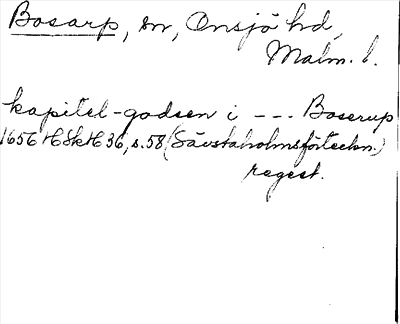 Bosarp, sn, Onsjö hd,
Malm. l.
kapitel-godsen i --- Boserup
1656 HSkH 36, s. 58 (Sävstaholmsförteckn.)
regest.